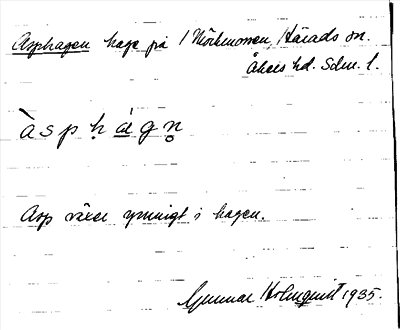 Asphagen hage på 1 Mörkmossen, Härads sn.
Åkers hd. Sdm. l.
àsphágn
Asp växer ymnigt i hagen.
Gunnar Holmquist 1935.